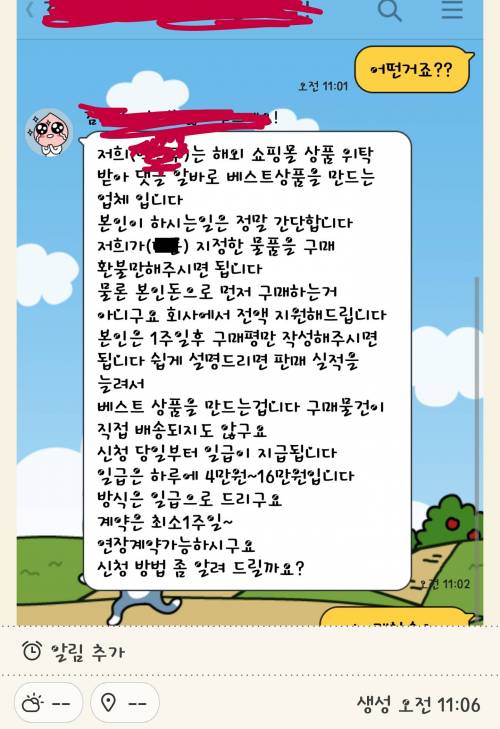 어떤거죠??
오전 11:01
저희(
)는 해외 쇼핑몰 상품 위탁
받아 댓글 알바로 베스트상품을 만드는
업체 입니다
본인이 하시는일은 정말 간단합니다
저희가(
) 지정한 물품을 구매
환불만해주시면 됩니다
물론 본인돈으로 먼저 구매하는거
아니구요 회사에서 전액 지원해드립니다
본인은 1주일후 구매평만 작성해주시면
됩니다 쉽게 설명드리면 판매 실적을
늘려서
베스트 상품을 만드는겁니다 구매물건이
직접 배송되지도 않구요
신청 당일부터 일급이 지급됩니다
일급은 하루에 4만원~16만원입니다
방식은 일급으로 드리구요
계약은 최소1주일~
연장계약가능하시구요
신청 방법 좀 알려 드릴까요?
오전 11:02
알림 추가
--
--
생성 오전 11:06